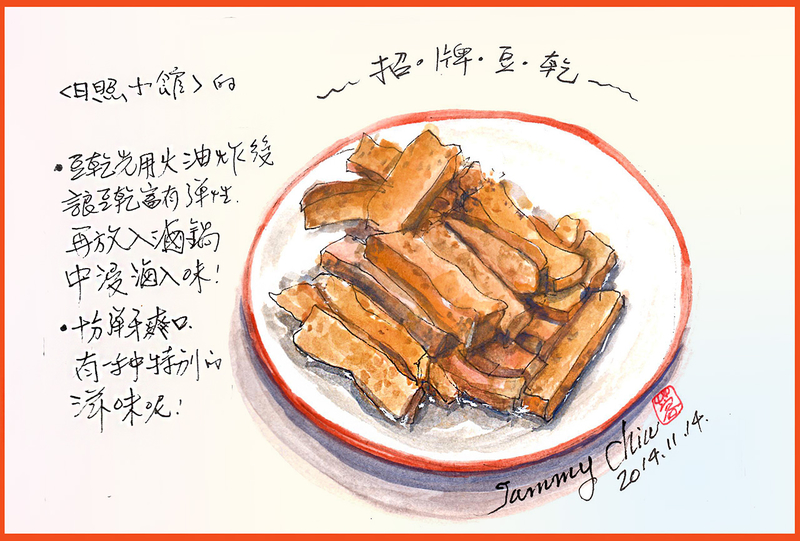 <日照小館>的
招·牌·豆·乾
•豆乾先用火油炸後
讓豆乾富有弹性.
再放入滷鍋
中浸滷入味!
•十分弹牙爽口
有一种特别的
滋味呢!
Tammy Chiu
2014.11.14.